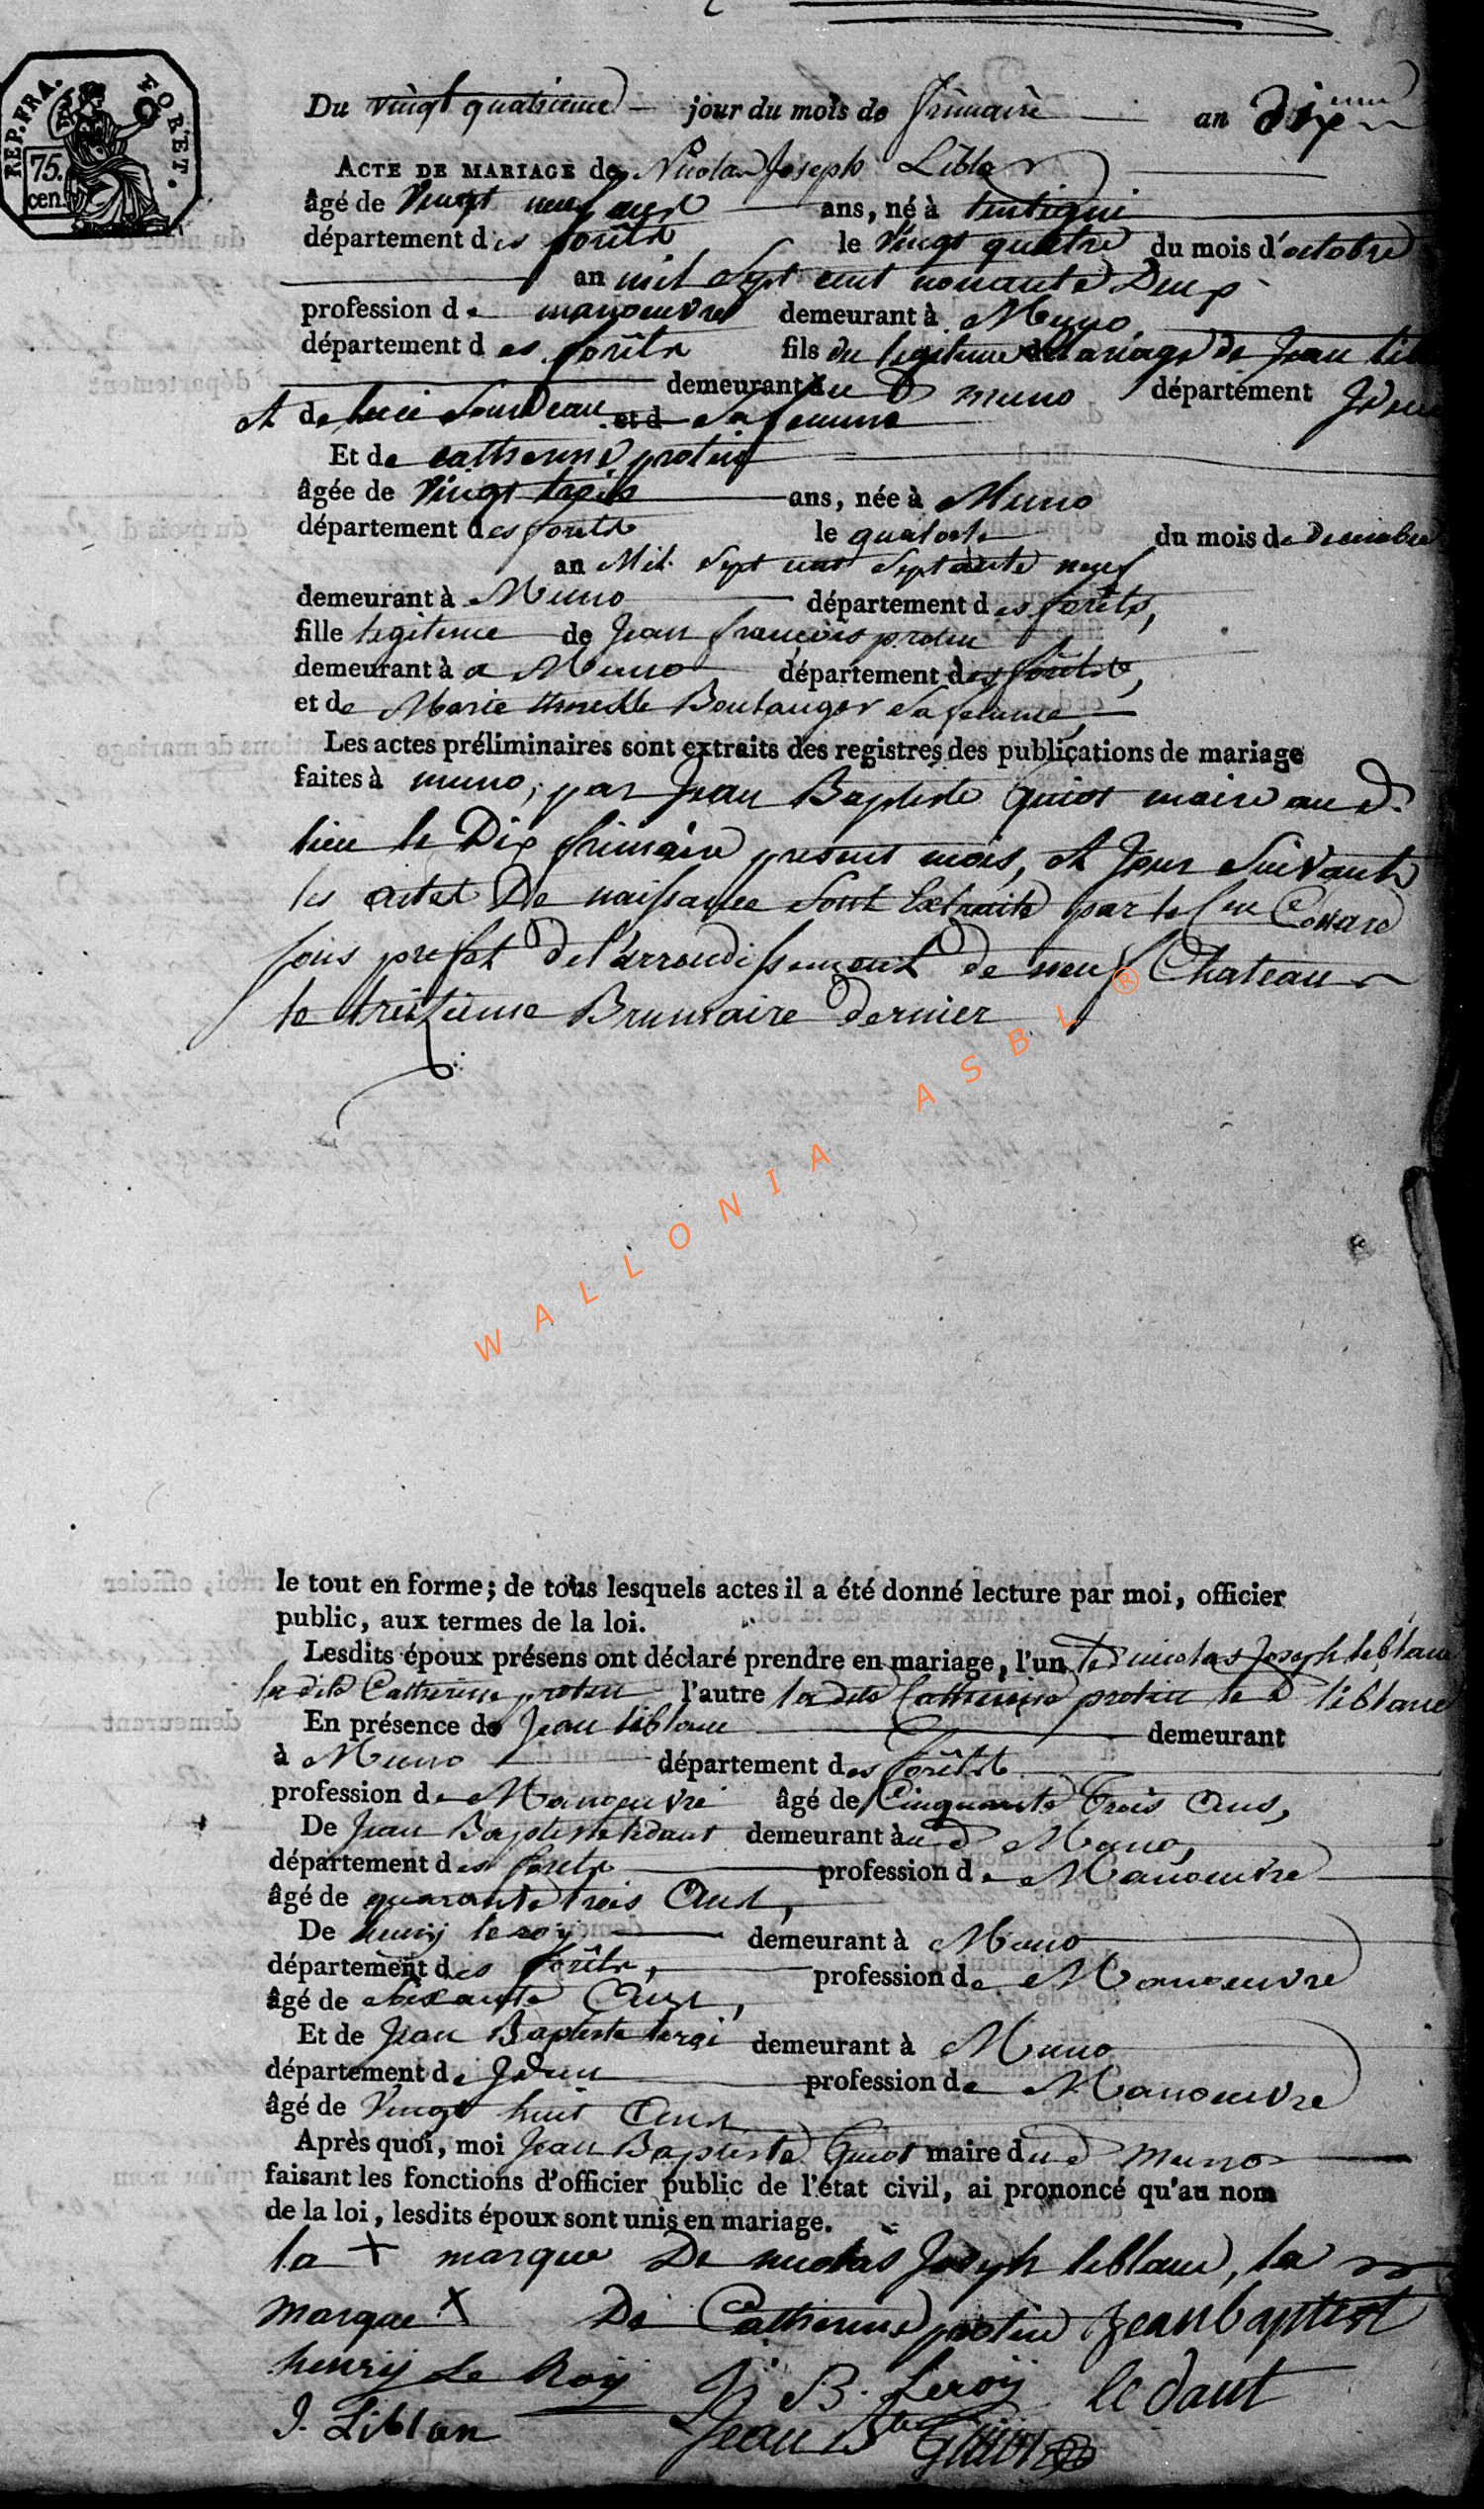 REP. FRA.
FORET.
75.
cen.
Du vingt quatrieme jour du mois de frimaire an dix
ACTE DE MARIAGE de Nicolas Joseph Liblan
âgé de Vingt neuf ans ans, né à tintigni
département des forêts le vingt quatre du mois d'octobre
an mil sept cent nonante Deux
profession de manoeuvre demeurant à Muno
département des forêts fils du legitime mariage de Jean
demeurant au d muno département Idem
et de luci Sourdeau et d sa femme
Et de catherine protin
âgée de Vingt trois ans, née à Muno
département des forêts le quatorse du mois de Decembre
an Mil Sept cent Septante neuf
demeurant à Muno département des forêts,
fille legitime de Jean françois protin
demeurant à a Muno département des forêts,
et de Marie theresse Boulanger sa femme,
Les actes préliminaires sont extraits des registres des publications de mariage
faites à muno, par Jean Baptiste Guiot maire au d.
lieu le Dix frimaire present mois, et Jour Suivants
les actes De naissance sont Extraits par le Cen Collard
sous prefet de l'arrondissement de neuf Chateau
le treizieme Brumaire dernier
WALLONIA ASBL ®
le tout en forme; de tous lesquels actes il a été donné lecture par moi, officier
public, aux termes de la loi.
Lesdits époux présens ont déclaré prendre en mariage, l'un led nicolas Joseph leblanc
la dite Catherine protin l'autre la dite Catherine protin le d liblanc
En présence de Jean liblanc demeurant
à Muno département des forêts
profession de Manoeuvre âgé de Cinquante Trois Ans,
De Jean Baptiste ledant demeurant au d Muno,
département des forets profession de Manoeuvre
âgé de quarante trois Ans,
De henrij leroy demeurant à Muno
département des forêts, profession de Manoeuvre
âgé de soixante Ans,
Et de Jean Baptiste leroi demeurant à Muno
département de Idem profession de Manoeuvre
âgé de Vingt huit Ans
Après quoi, moi Jean Baptiste Guiot maire dud Muno
faisant les fonctions d'officier public de l'état civil, ai prononcé qu'au nom
de la loi, lesdits époux sont unis en mariage.
la + marque De nicolas Joseph leblanc, la
marque x De Catherine protin Jean baptist
henrij Le Roij J B. Leroij le dant
J. Liblan Jean Bte Guiot